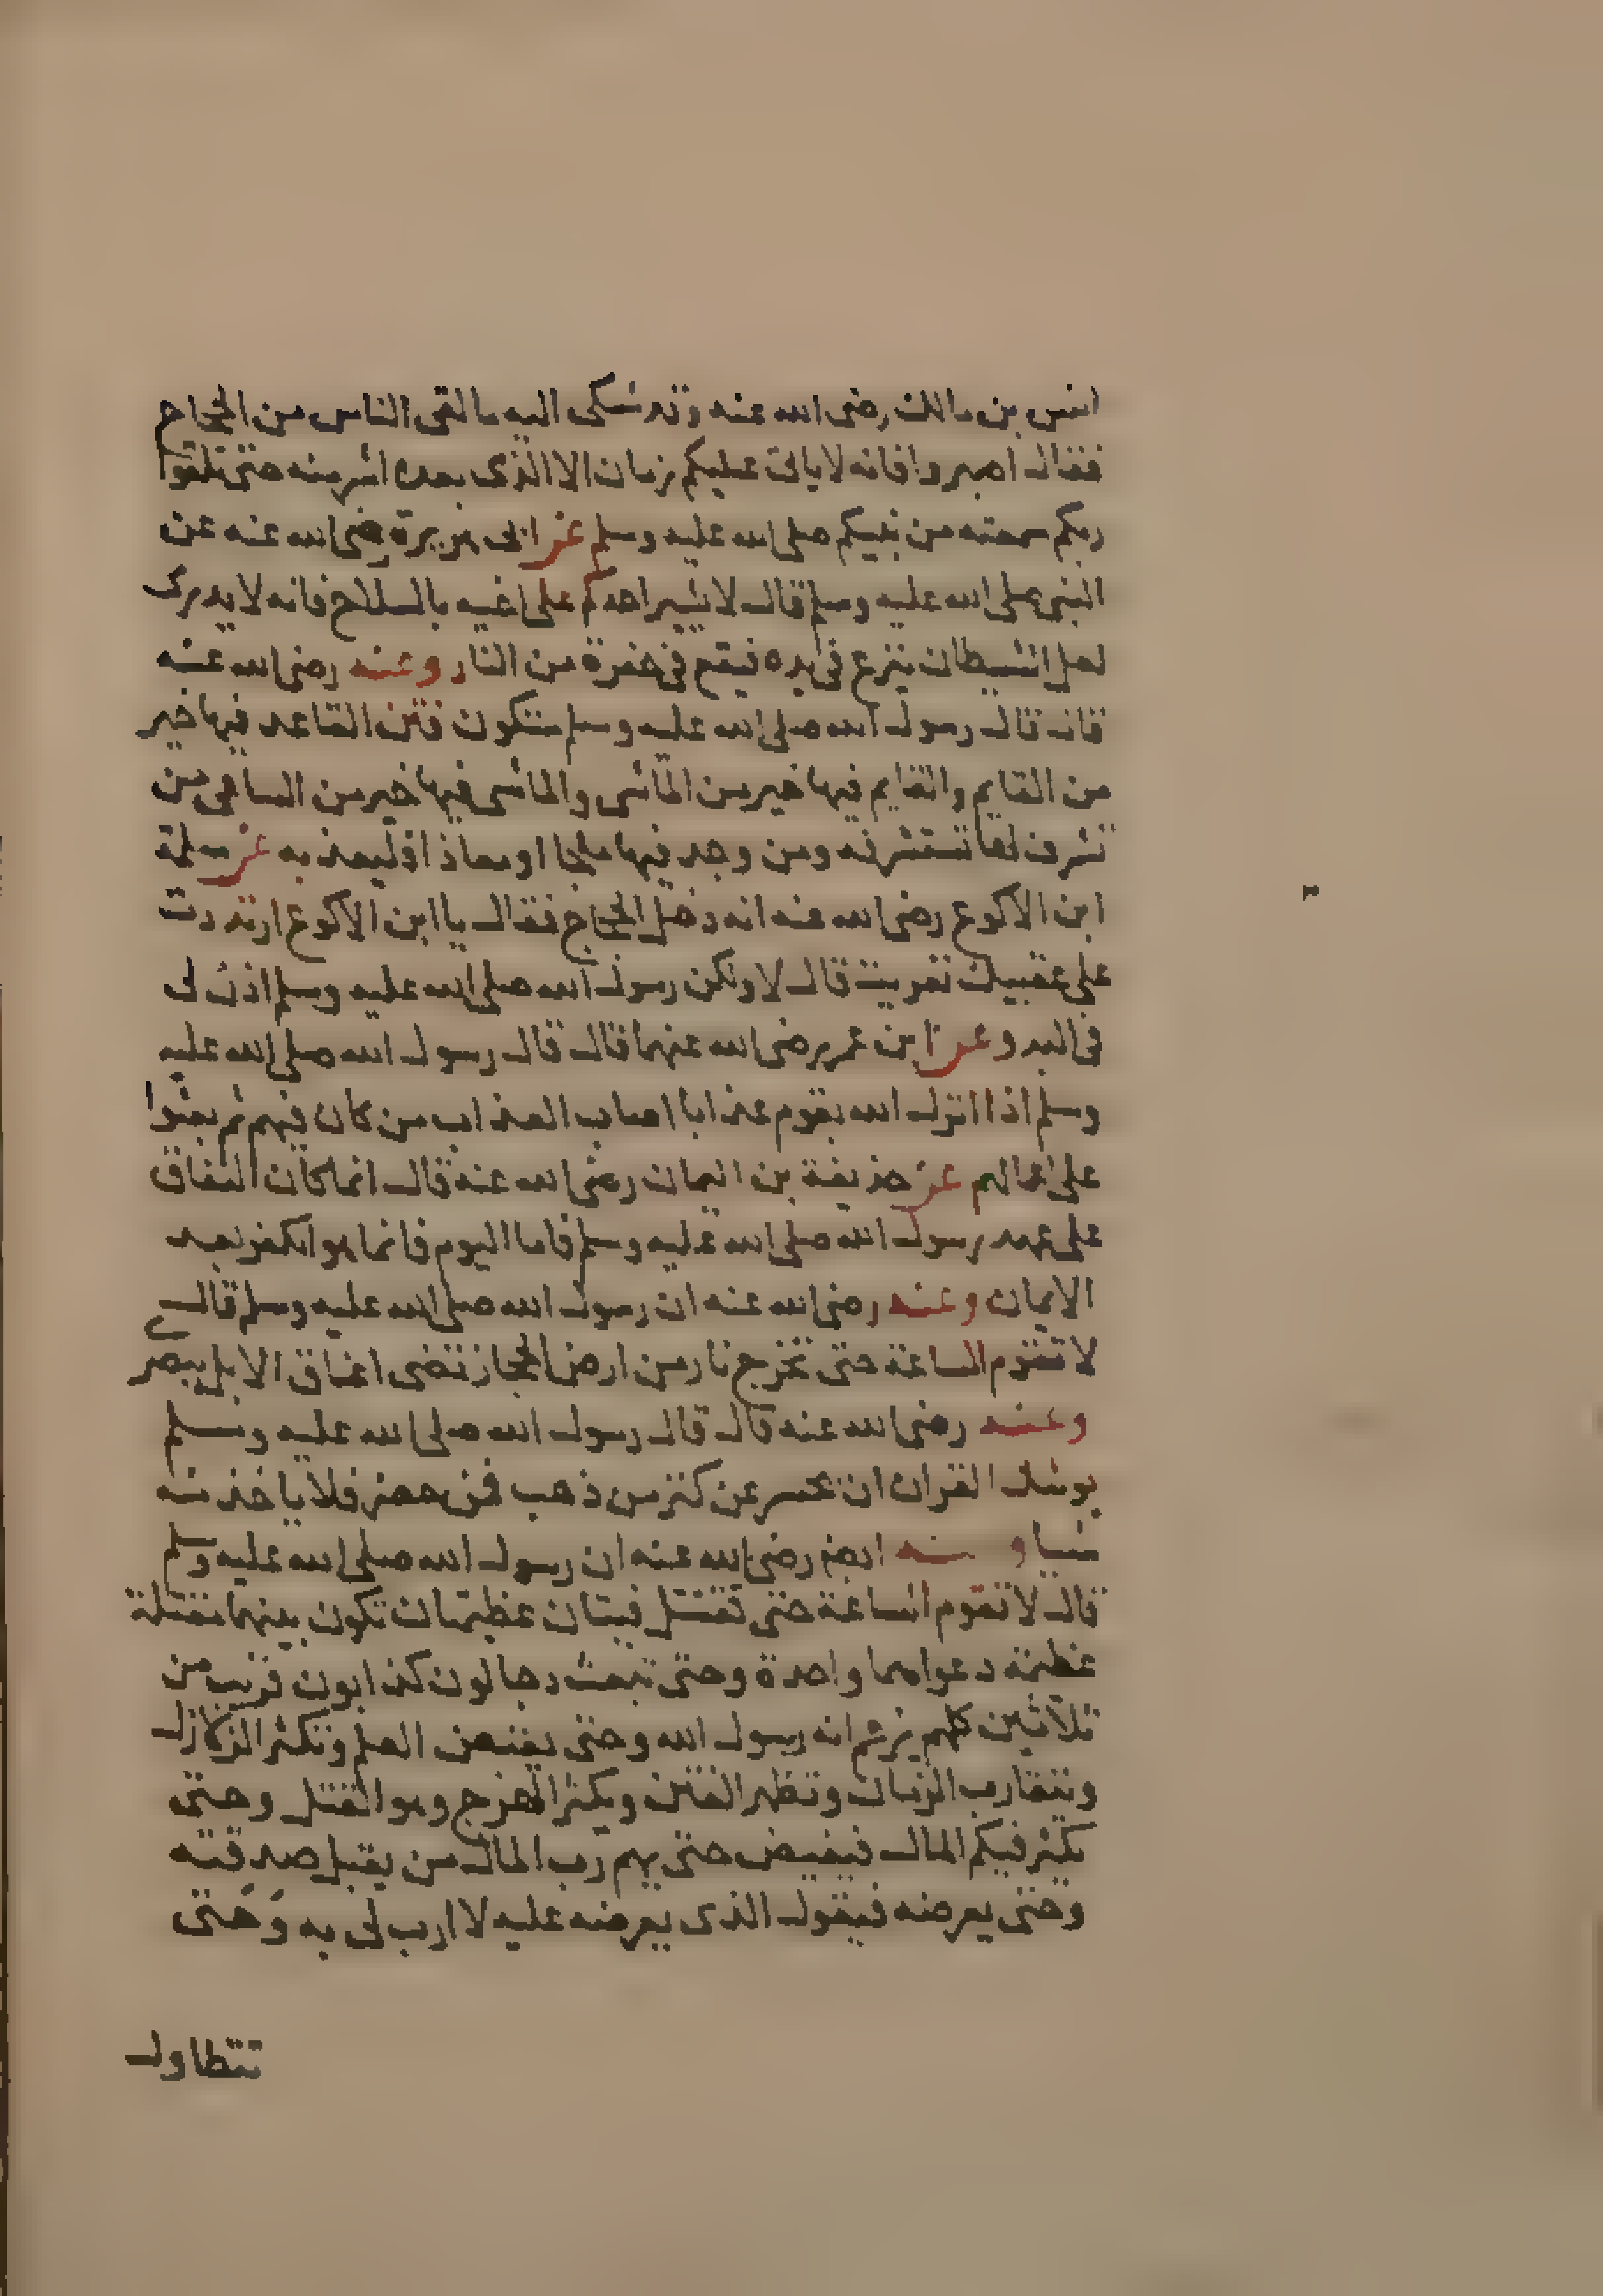 انس بن مالك رضى الله عنه وقد شكى اليه ما لقى الناس من الحجاج
فقال اصبروا فانه لا ياتى عليكم زمان الا الذى بعده اشر منه حتى تلقوا
ربكم سمعته من نبيكم صلى الله عليه وسلم عن ابى هريرة رضى الله عنه عن
النبى صلى الله عليه وسلم قال لا يشير احدكم على اخيه بالسلاح فانه لا يدرى
لعل الشيطان ينزع فى يده فيقع فى حفرة من النار وعنه رضى الله عنه
قال قال رسول الله صلى الله عليه وسلم ستكون فتن القاعد فيها خير
من القايم والقايم فيها خير من الماشى والماشى فيها خير من الساعى من
تشرف لها تستشرفه ومن وجد فيها ملجا او معاذا فليعذ به عن سلمة
ابن الاكوع رضى الله عنه انه دخل الحجاج فقال يا ابن الاكوع ارتددت
على عقبيك تعربت قال لا ولكن رسول الله صلى الله عليه وسلم اذن لى
فى البدو عن ابن عمر رضى الله عنهما قال قال رسول الله صلى الله عليه
وسلم اذا انزل الله بقوم عذابا اصاب العذاب من كان فيهم ثم بعثوا
على اعمالهم عن حذيفة بن اليمان رضى الله عنه قال انما كان النفاق
على عهد رسول الله صلى الله عليه وسلم فاما اليوم فانما هو الكفر بعد
الايمان وعنه رضى الله عنه ان رسول الله صلى الله عليه وسلم قال
لا تقوم الساعة حتى تخرج نار من ارض الحجاز تضى اعناق الابل ببصرى
وعنه رضى الله عنه قال قال رسول الله صلى الله عليه وسلم
يوشك الفرات ان تحسر عن كنز من ذهب فمن حضر فلا ياخذ منه
شيا وعنه ايضا رضى الله عنه ان رسول الله صلى الله عليه وسلم
قال لا تقوم الساعة حتى تقتتل فيتان عظيمتان تكون بينهما مقتلة
عظيمة دعواهما واحدة وحتى تبعث دجالون كذابون قريب من
ثلاثين كلهم يزعم انه رسول الله وحتى يقبض العلم وتكثر الزلازل
وتتقارب الزمان وتظهر الفتن ويكثر الهرج وهو القتل وحتى
يكثر فيكم المال فيفيض حتى يهم رب المال من يقبل صدقته
وحتى يعرضه فيقول الذى يعرضه عليه لا ارب لى به وحتى
تتطاول